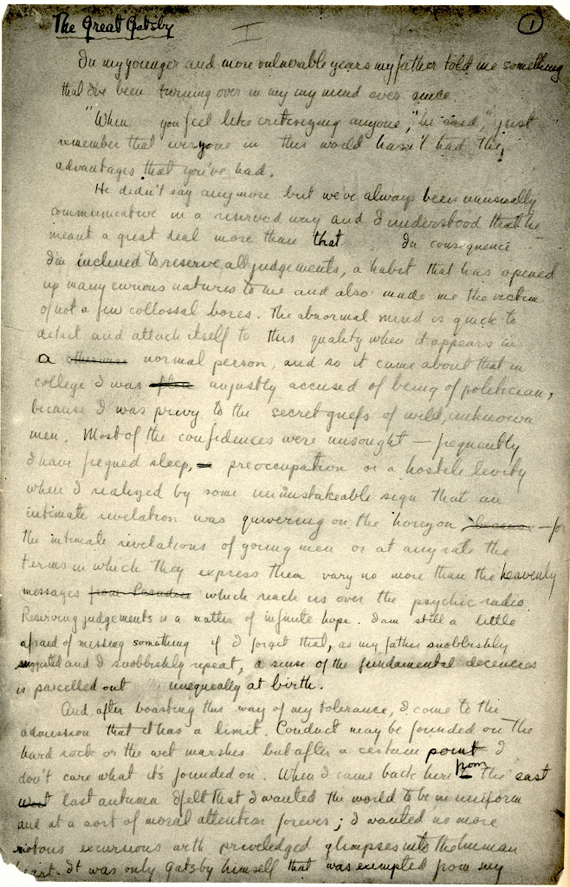 The Great Gatsby
1
I
In my younger and more vulnerable years my father told me something
that I've been turning over in my my mind ever since
"When you feel like critisizing anyone," he said, "just
remember that everyone in this world hasn't had the
advantages that you've had.
He didn't say anymore but we've always been unusually
communicative in a reserved way and I understood that he
meant a great deal more than that In consequence
I'm inclined to reserve all judgements, a habit that has opened
up many curious natures to me and also made me the victim
of not a few collossal bores. The abnormal mind is quick to
detect and attach itself to this quality when it appears in
a otherwise normal person, and so it came about that in
college I was unjustly accused of being of politician,
because I was privy to the secret griefs of wild, unknown
men. Most of the confidences were unsought — frequently
I have feigned sleep, preoccupation or a hostile levity
when I realized by some unmistakeable sign that an
intimate revelation was quivering on the horizon — for
the intimate revelations of young men or at any rate the
terms in which they express them vary no more than the heavenly
messages from Paradise which reach us over the psychic radio.
Reserving judgements is a matter of infinite hope. I am still a little
afraid of missing something if I forget that, as my father snobbishly
suggested and I snobbishly repeat, a sense of the fundamental decencies
is parcelled out unequally at birth.
And, after boasting this way of my tolerance, I come to the
admission that it has a limit. Conduct may be founded on the
hard rock or the wet marshes but after a certain point I
don't care what it's founded on. When I came back here from the east
last autumn I felt that I wanted the world to be in uniform
and at a sort of moral attention forever; I wanted no more
riotous excursions with priviledged glimpses into the human
heart. It was only Gatsby himself that was exempted from my